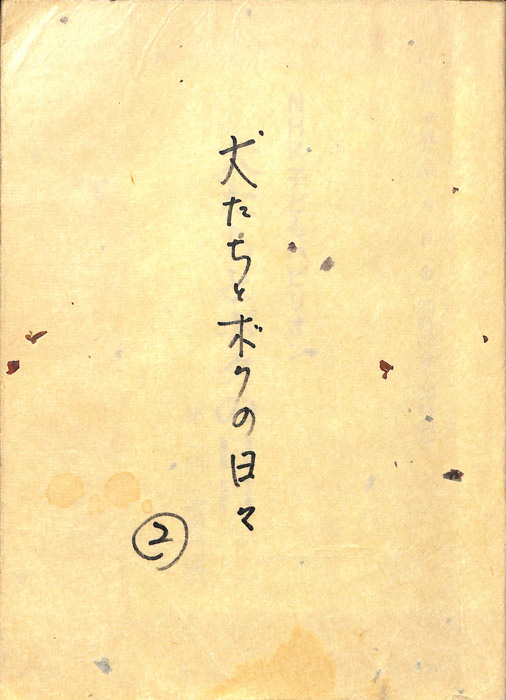 犬たちとボクの日々
②